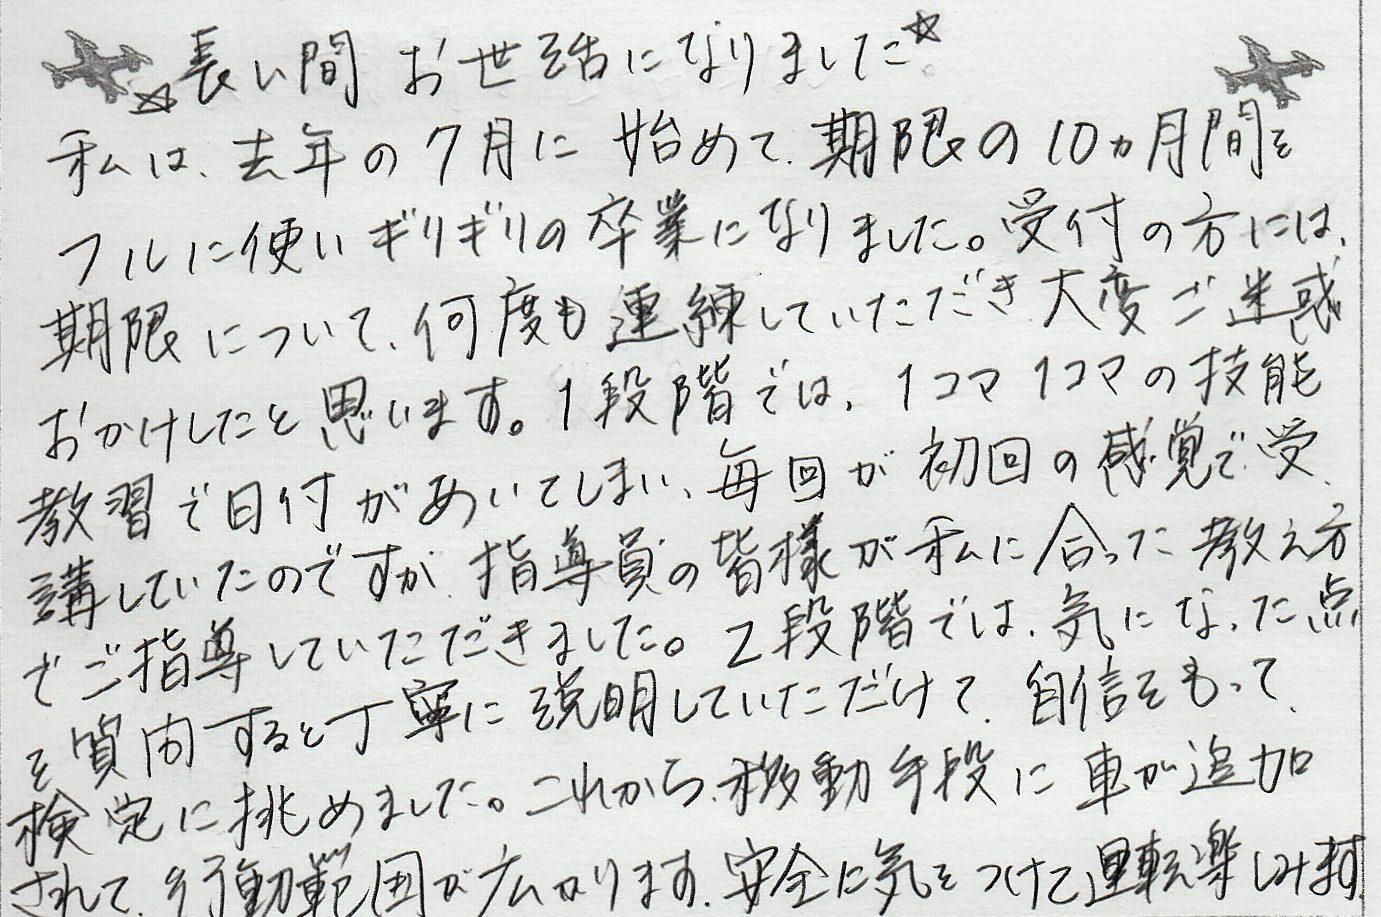 ☆長い間 お世話になりました☆
私は、去年の7月に始めて、期限の10ヵ月間を
フルに使いギリギリの卒業になりました。受付の方には、
期限について、何度も連練していただき、大変ご迷惑
おかけしたと思います。1段階では、1コマ1コマの技能
教習で日付があいてしまい、毎回が初回の感覚で受
講していたのですが、指導員の皆様が私に合った教え方
でご指導していただきました。2段階では、気になった点
を質問すると丁寧に説明していただけて、自信をもって、
検定に挑めました。これから、移動手段に車が追加
されて、行動範囲が広がります。安全に気をつけて運転楽しみます。